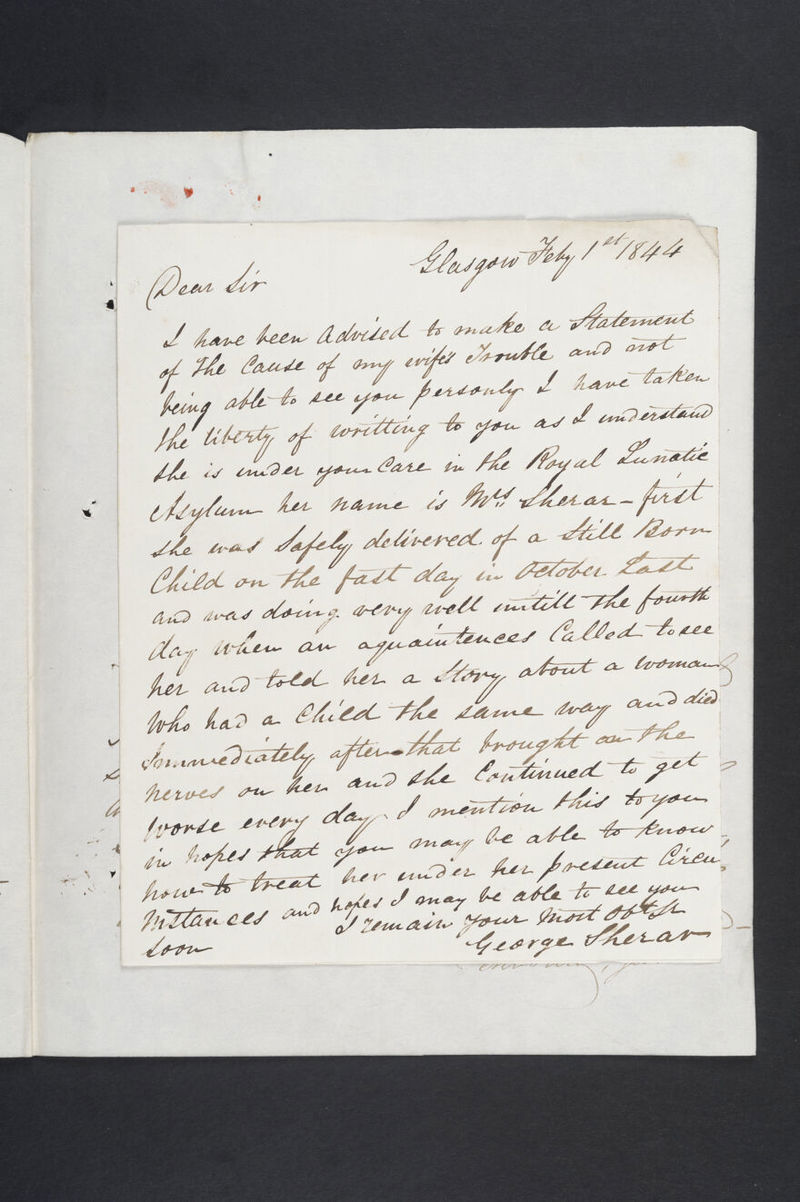 Glasgow Feby 1st 1844
Dear Sir
I have been Advised to make a Statement
of The Cause of my wife's Trouble and not
being able to see you personly I have taken
the liberty of writting to you as I understand
she is under your Care in the Royal Lunatic
Asylum her name is Mrs Sherar - first
she was Safely delivered of a Still Born
Child on the fast day in October Last
and was doing very well untill the fourth
day when an aquaintences Called to see
her and told her a Story about a woman
Who had a Child the same way and died
Immediately after that brought on the
nerves on her and she Continued to get
worse every day I mention this to you
in hopes that you may be able to know
how to treat her under her present Circu
mstances and hopes I may be able to see you
soon I remain your Most Obt St
George Sherar